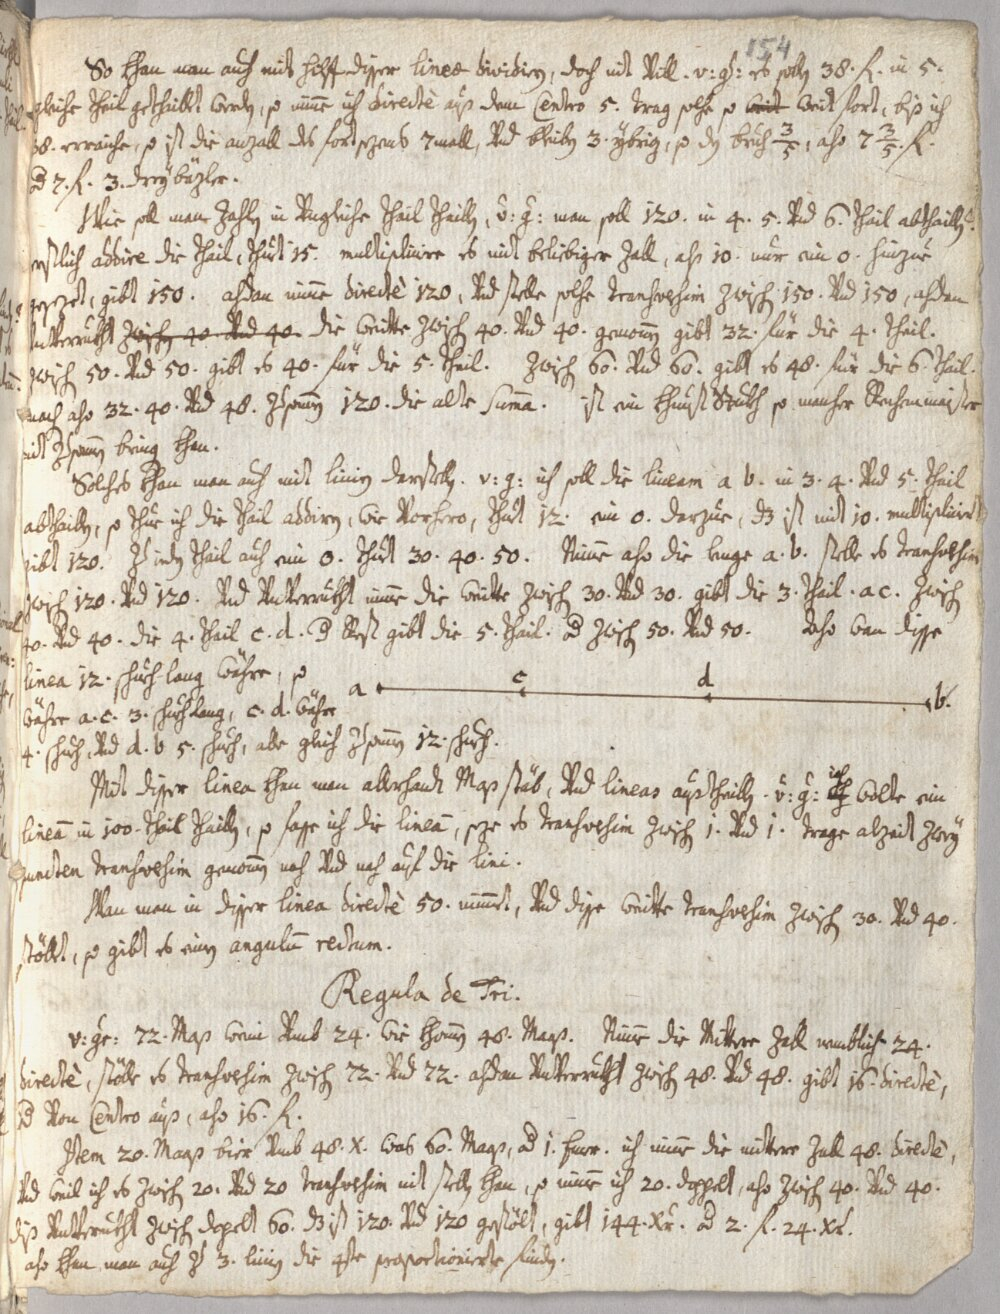 154
So khan man auch mit hilff diser linea dividirn, doch nit Vill. v: g: es solln 38. f. in 5.
gleiche theil getheillt werdn, so nimme ich directè auß dem Centro 5. trag solche so weit fort, biß ich
38. erraiche, so ist die anzall des fortsezens 7mall, Vnd bleibn 3. ybrig, so dz bruch 3/5, also 7 3/5 f.
7. f. 3. dreybäzler.
Wie soll man Zahln in Vngleiche theil theilln, v: g: man soll 120. in 4. 5. Vnd 6. theil abtheilln?
erstlich addire die theil, thuet 15. multiplicire es mit beliebiger Zall, als 10. nur ein 0. hinzue
gesezet, gibt 150. alsdan nimme directè 120, Vnd stelle solche transversim zwisch 150. Vnd 150, alsdan
Vnverruckht zwisch 40 Vnd 40. die weitte zwisch 40. Vnd 40. genomen gibt 32. für die 4. theil.
zwisch 50. Vnd 50. gibt es 40. für die 5. theil. zwisch 60. Vnd 60. gibt es 48. für die 6. theil.
mach also 32. 40. Vnd 48. Zsamen 120. die alte summa. ist ein khunst stuckh so mancher Rechenmaister
nit Zsamen bring khan.
Solches khan man auch mit linien darstelln. v: g: ich soll die lineam a b. in 3. 4. Vnd 5. theil
abtheilln, so thue ich die theil addirn, wie Vorhero, thuet 12. ein 0. darzue, dz ist mit 10. multiplicirt
gibt 120. Z iedn theil auch ein 0. thuet 30. 40. 50. Nimme also die lenge a. b. stelle es transversim
zwisch 120. Vnd 120. Vnd Vnverruckht nimme die weitte zwisch 30. Vnd 30. gibt die 3. theil. a c. zwisch
40. Vnd 40. die 4. theil c. d. Rest gibt die 5. theil. zwisch 50. Vnd 50. Also wan dise
linea 12. schuch lang währe, so
währe a. c. 3. schuch lang, c. d. währe
4. schuch, Vnd d. b 5. schuch, alle gleich Zsamen 12. schuch.
a c d b.
Mit diser linea khan man allerhandt Maß stäb, Vnd lineas außtheilln. v: g: ich wolte ein
lineam in 100. theil theilln, so fasse ich die lineam, seze es transversim zwisch 1. Vnd 1. trage alzeit zwey
puncten transversim genomen nach Vnd nach auf die lini.
Wan man in diser linea directè 50. nimmet, Vnd dise weitte transversim zwisch 30. Vnd 40.
stöllt, so gibt es einen angulum rectum.
Regula de Tri.
v: gr: 72. Maß wein Vmb 24. wie khomen 48. Maß. Nimme die Mittere Zall nemblich 24.
directè, stölle es transversim zwisch 72. Vnd 72. alsdan Vnverruckht zwisch 48. Vnd 48. gibt 16. directè,
Von Centro auß, also 16. f.
Item 20. Maaß bier Vmb 48. x. was 60. Maaß, 1. ich nimme die mittere Zall 48. directè,
Vnd weil ich es zwisch 20. Vnd 20 transversim nit stelln khan, so nimme ich 20. doppelt, also zwisch 40. Vnd 40.
diß Vnverruckht zwisch dopelt 60. dz ist 120. Vnd 120 gestölt, gibt 144. xr. 2. f. 24. xr.
also khan man auch Z 3. linien die 4te proportionierte findn.